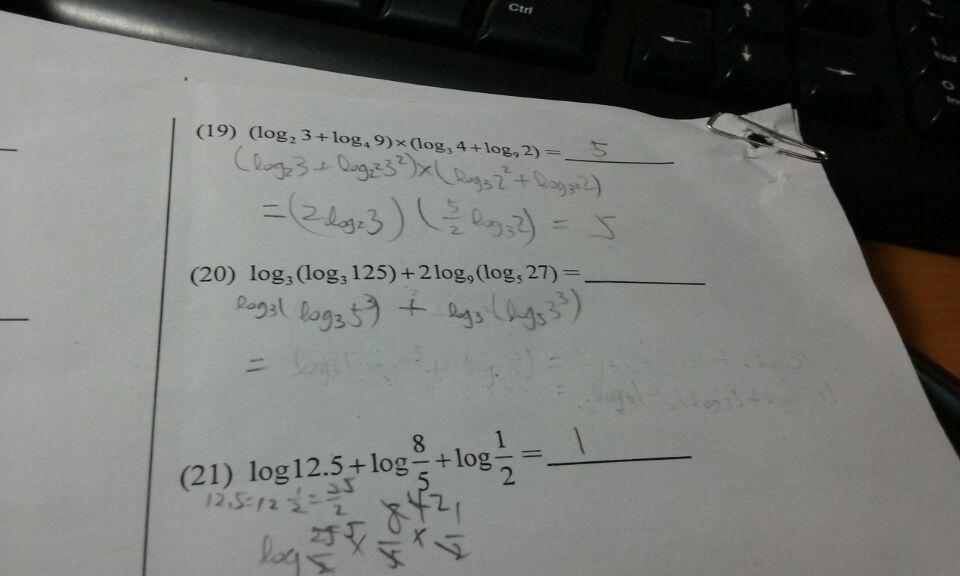 Ctrl
End
(19) (log₂ 3 + log₄ 9) × (log₃ 4 + log₉ 2) = 5
(log₂3 + log₂²3²) × (log₃2² + log₃²2)
= (2log₂3) (5/2 log₃2) = 5
(20) log₃(log₃ 125) + 2 log₉(log₅ 27) =
log₃(log₃5³) + log₃(log₅3³)
=
(21) log 12.5 + log 8/5 + log 1/2 = 1
12.5=12 1/2 = 25/2
log 25/2 × 8/5 × 1/2